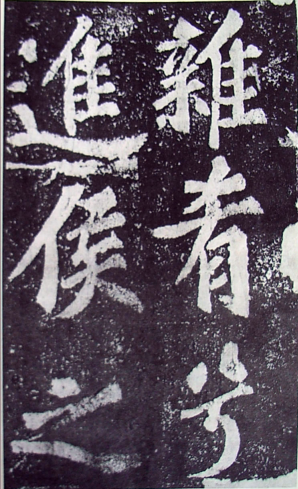 雜肴兮
進侯之